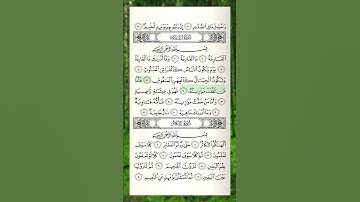 وَحُصِّلَ مَا فِي ٱلصُّدُورِ ١٠ إِنَّ رَبَّهُم بِهِمْ يَوْمَئِذٍ لَّخَبِيرٌۢ ١١
سُورَةُ القَارِعَةِ
بِسْمِ ٱللَّهِ ٱلرَّحْمَٰنِ ٱلرَّحِيمِ
ٱلْقَارِعَةُ ١ مَا ٱلْقَارِعَةُ ٢ وَمَآ أَدْرَىٰكَ مَا ٱلْقَارِعَةُ ٣
يَوْمَ يَكُونُ ٱلنَّاسُ كَٱلْفَرَاشِ ٱلْمَبْثُوثِ ٤
وَتَكُونُ ٱلْجِبَالُ كَٱلْعِهْنِ ٱلْمَنفُوشِ ٥ فَأَمَّا
مَن ثَقُلَتْ مَوَٰزِينُهُۥ ٦ فَهُوَ فِي عِيشَةٍ رَّاضِيَةٍ
٧ وَأَمَّا مَنْ خَفَّتْ مَوَٰزِينُهُۥ ٨ فَأُمُّهُۥ هَاوِيَةٌ
٩ وَمَآ أَدْرَىٰكَ مَا هِيَهْ ١٠ نَارٌ حَامِيَةٌۢ ١١
سُورَةُ التَّكَاثُرِ
بِسْمِ ٱللَّهِ ٱلرَّحْمَٰنِ ٱلرَّحِيمِ
أَلْهَىٰكُمُ ٱلتَّكَاثُرُ ١ حَتَّىٰ زُرْتُمُ ٱلْمَقَابِرَ ٢ كَلَّا سَوْفَ
تَعْلَمُونَ ٣ ثُمَّ كَلَّا سَوْفَ تَعْلَمُونَ ٤ كَلَّا لَوْ تَعْلَمُونَ
عِلْمَ ٱلْيَقِينِ ٥ لَتَرَوُنَّ ٱلْجَحِيمَ ٦ ثُمَّ لَتَرَوُنَّهَا
عَيْنَ ٱلْيَقِينِ ٧ ثُمَّ لَتُسْـَٔلُنَّ يَوْمَئِذٍ عَنِ ٱلنَّعِيمِ ٨